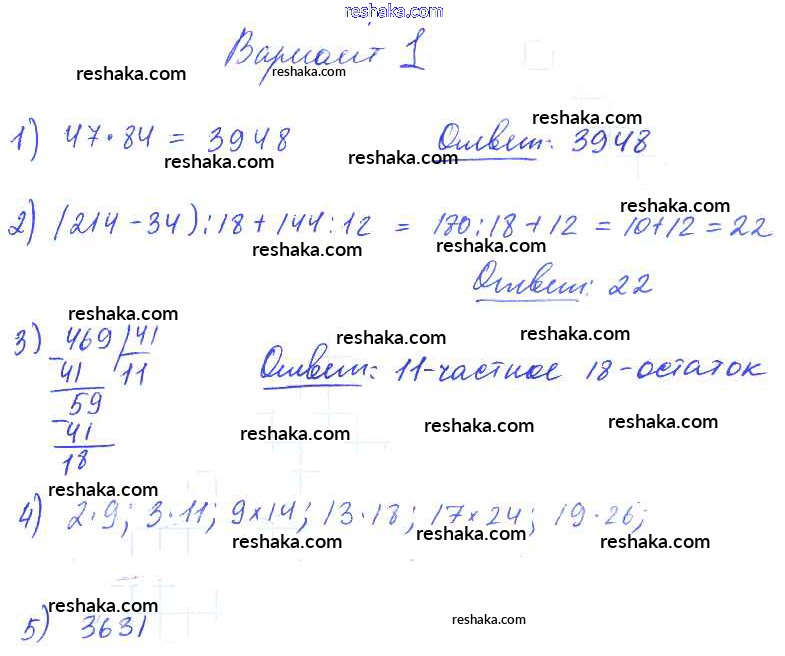 reshaka.com
Вариант 1
reshaka.com reshaka.com
reshaka.com
1) 47·84 = 3948 Ответ: 3948
reshaka.com reshaka.com
reshaka.com
2) (214-34):18+144:12 = 180:18+12 = 10+12=22
reshaka.com reshaka.com
Ответ: 22
reshaka.com
reshaka.com reshaka.com
3) 469 41
41 11 Ответ: 11-частное 18-остаток
59
41
reshaka.com reshaka.com reshaka.com
18
reshaka.com
4) 2·9; 3·11; 9×14; 13·18; 17×24; 19·26;
reshaka.com reshaka.com reshaka.com
reshaka.com reshaka.com
5) 3631